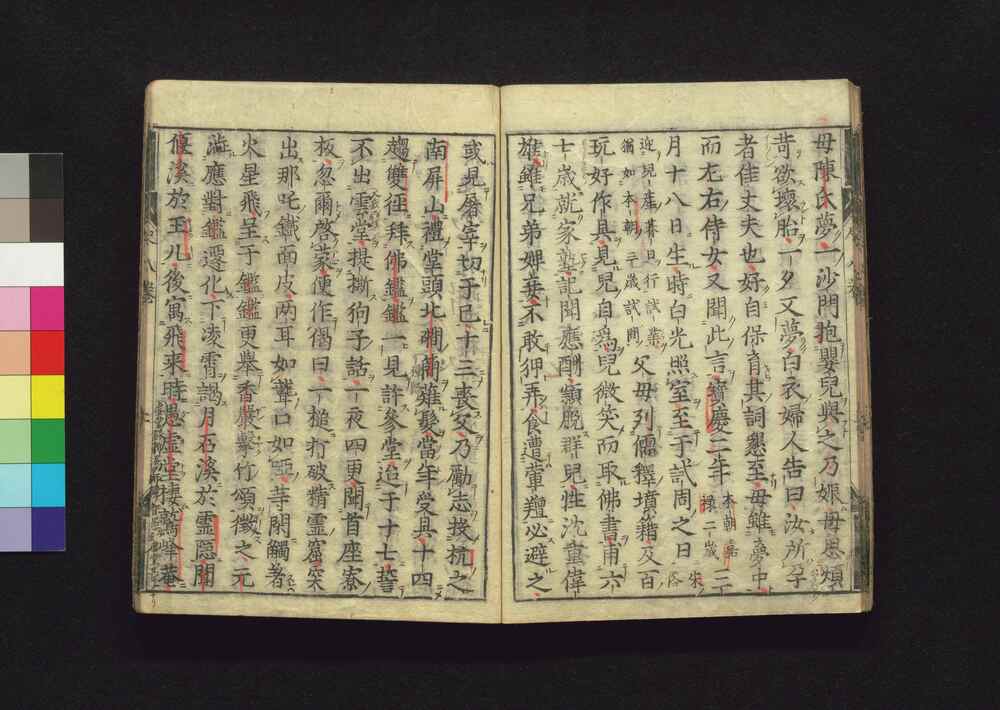 母陳氏夢一沙門抱嬰兒與之乃娠母患煩
苛欲壞胎一夕又夢白衣婦人告曰汝所孕
者佳丈夫也好自保育其詞懇至母雖夢中
而左右侍女又聞此言寶慶二年本朝嘉祿二歲二
月十八日生時白光照室至于試周之日宋
父母列儒釋墳籍及百
玩好作具見兒自為兒微笑而取佛書甫六
七歲就家塾記聞應酬頴脫群兒性沈重偉
雄雖兄弟婢妾不敢狎弄食遭葷羶必避之
或見屠宰切于己十三喪父乃勵志投杭之
南屏山禮堂頭北磵簡薙髮當年受具十四
趨雙徑拜佛鑑鑑一見許參堂迨于十七誓
不出雲堂提撕狗子話一夜四更聞首座寮
板忽爾啓蒙便作偈曰一槌打破精靈窟突
出那吒鐵面皮兩耳如聾口如啞等閑觸著
火星飛呈于鑑鑑更舉香嚴擊竹頌徵之元
應對鑑遷化下凌霄謁月石溪於靈隱聞
偃溪於玉几後寓飛來時愚虛堂棲鷲峰菴